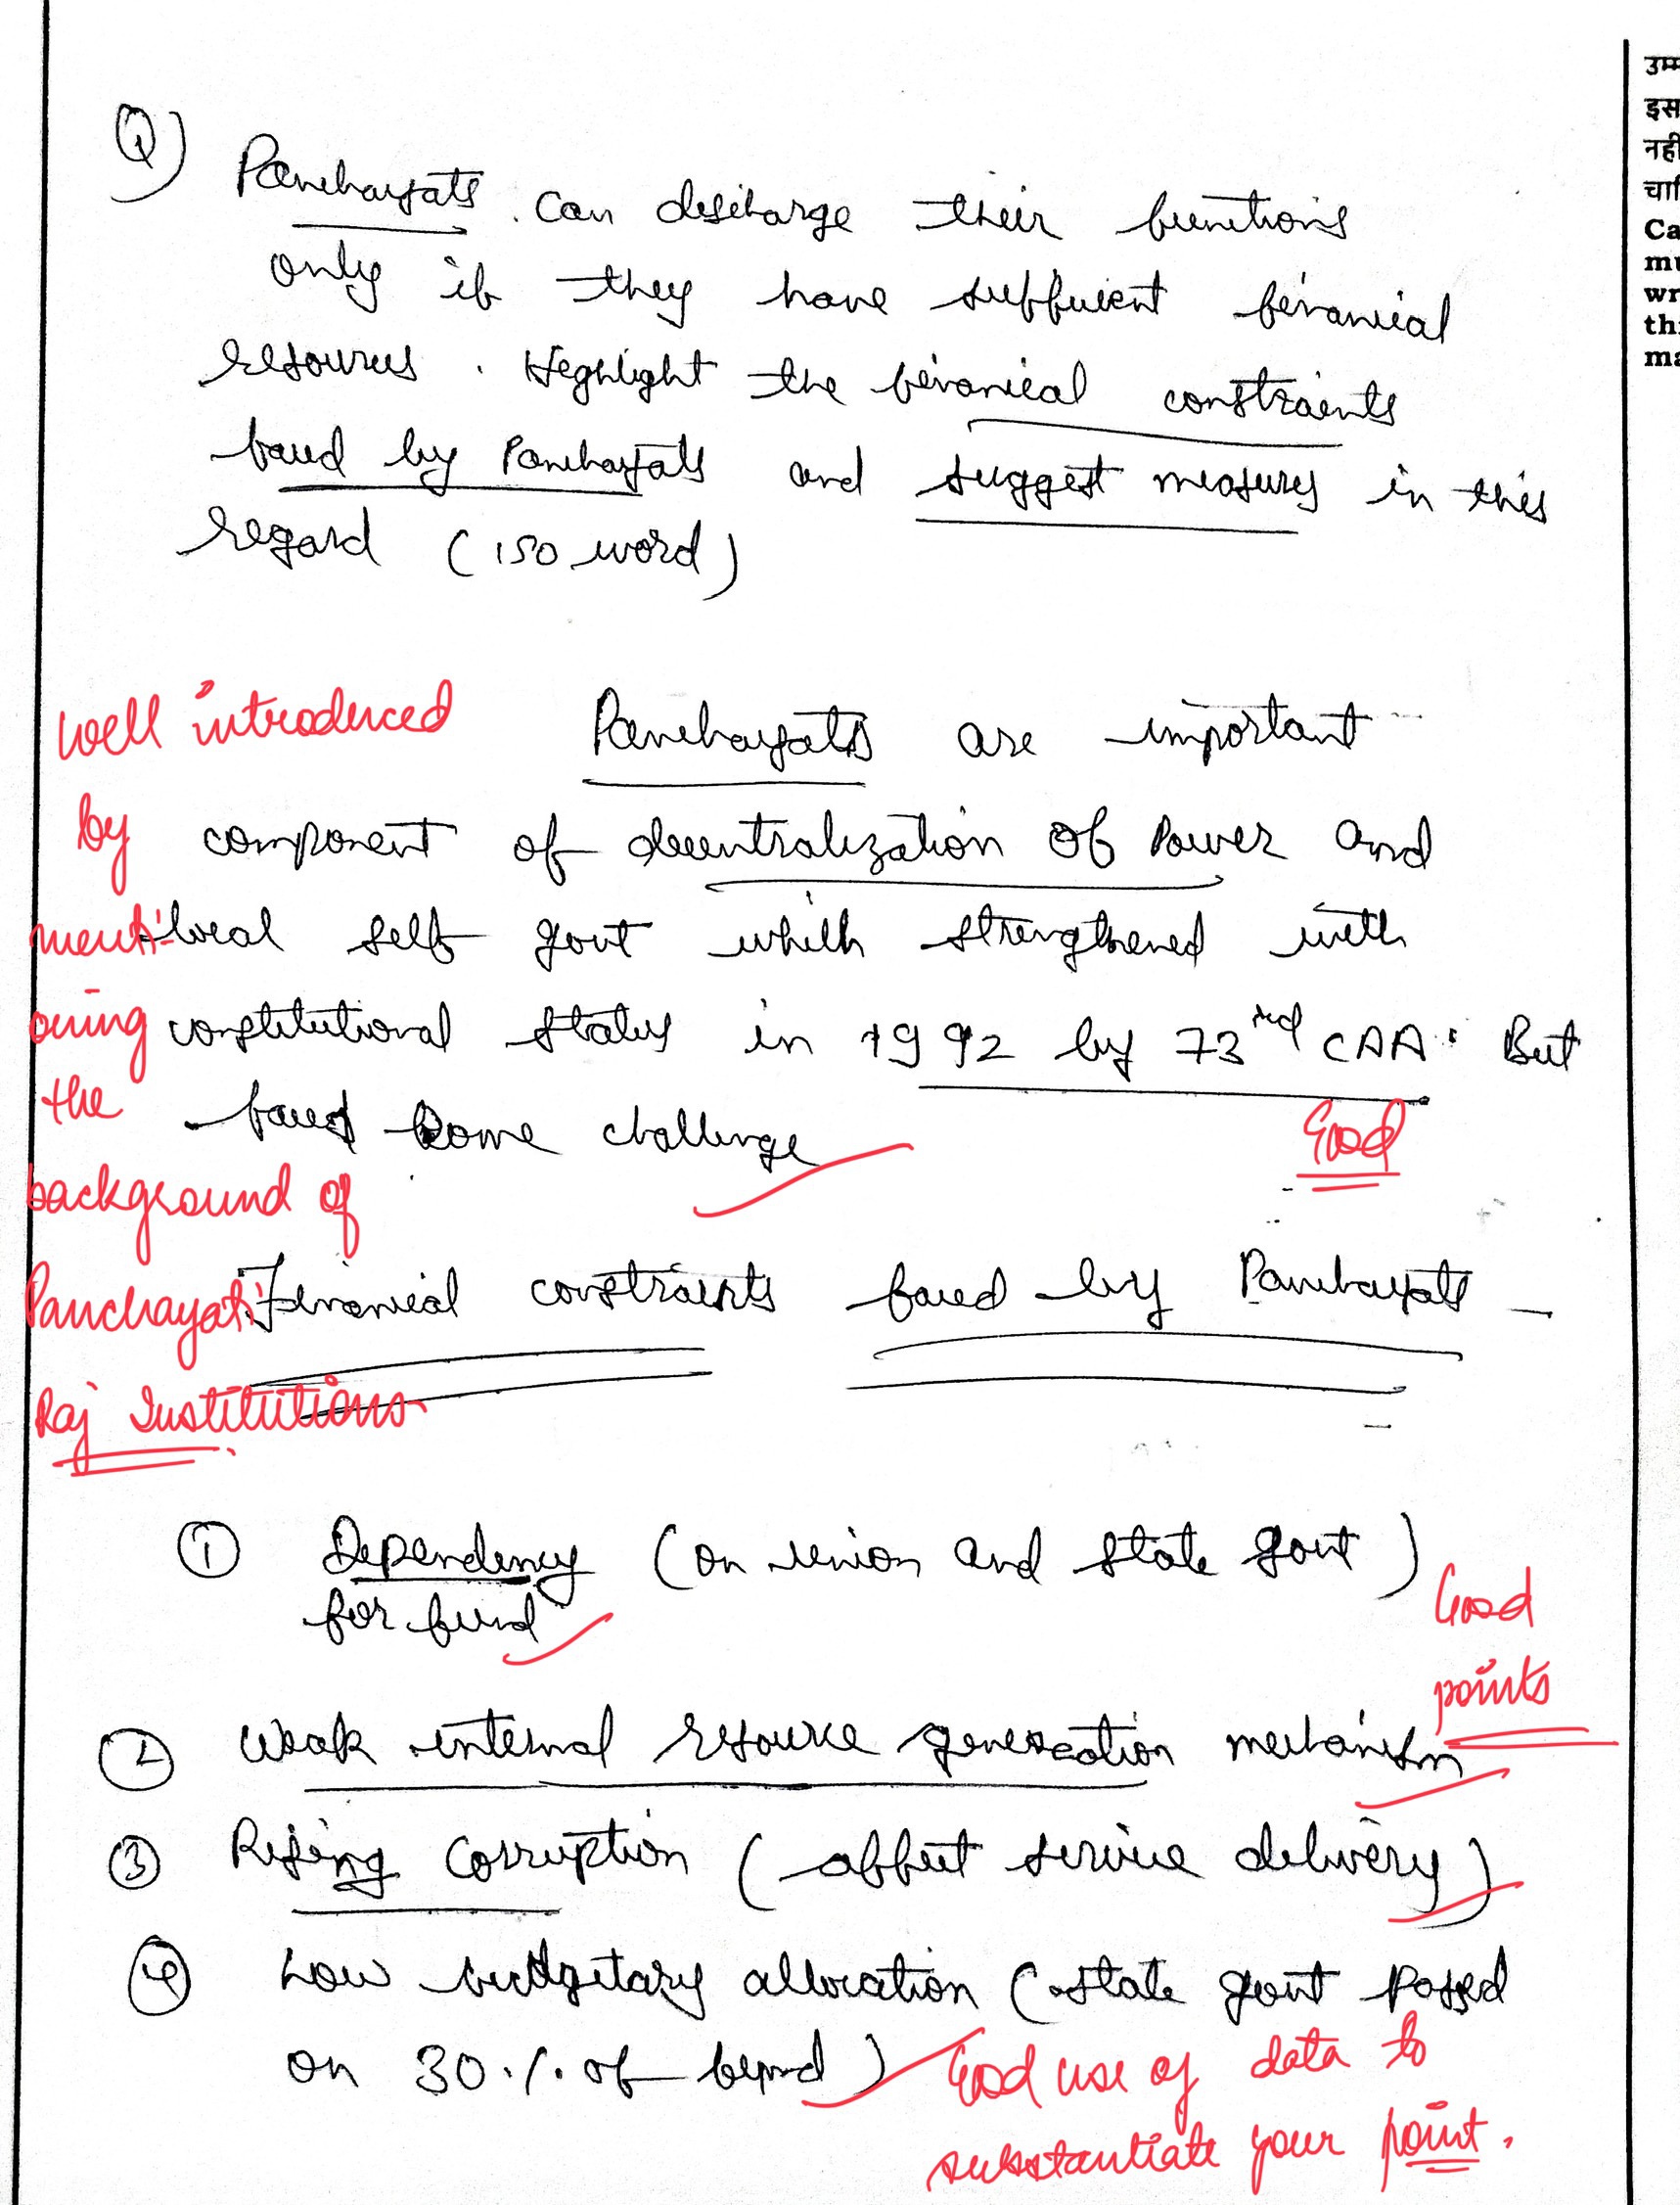 Q) Panchayats can discharge their functions
only if they have sufficient financial
resources. Highlight the financial constraints
faced by Panchayats and suggest measures in this
regard (150 word)
Well introduced
by
menti-
oning
the
background of
Panchayati
Raj Institutions
Panchayats are important
component of decentralization of Power and
local self govt which strengthened with
constitutional status in 1992 by 73rd CAA. But
faced some challenge
Good
Financial constraints faced by Panchayats –
① Dependency (on union and state govt)
for fund
Good
points
② Weak internal resource generation mechanism
③ Rising Corruption (affect service delivery)
④ Low budgetary allocation (state govt passed
on 30% of fund)
Good use of data to
substantiate your point.
उम्म
इस
नही
चाहि
Ca
mu
wr
thi
ma